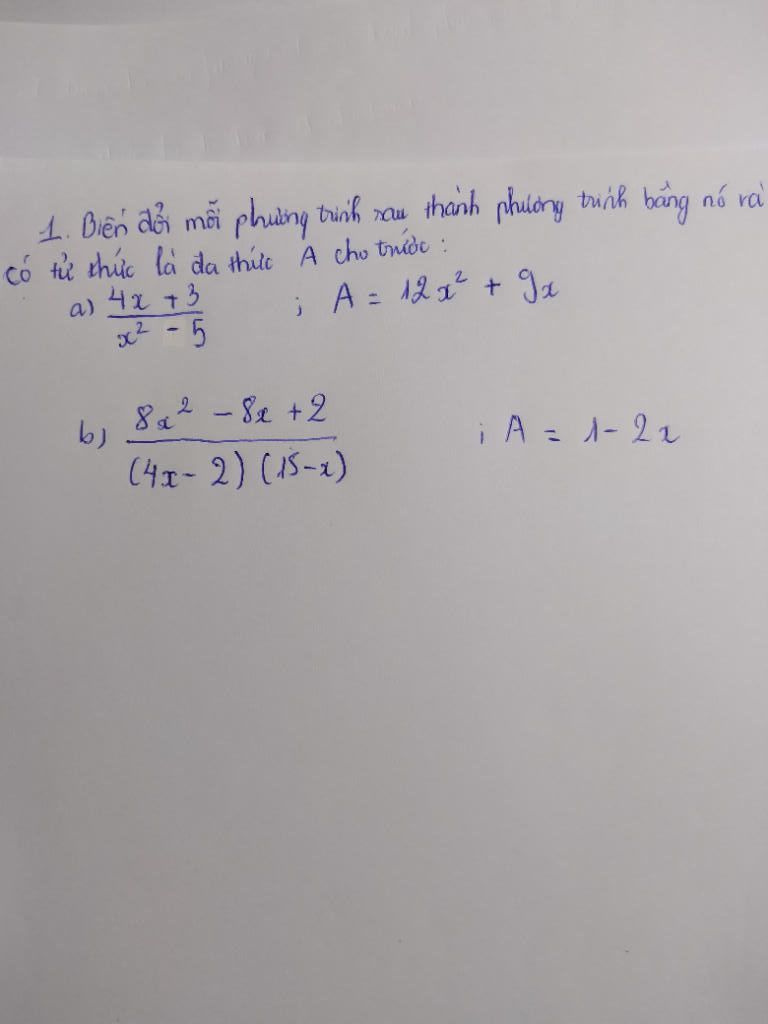 1. Biến đổi mỗi phương trình sau thành phương trình bằng nó và
có tử thức là đa thức A cho trước:
a) \frac{4x + 3}{x^2 - 5} ; A = 12x^2 + 9x
b) \frac{8x^2 - 8x + 2}{(4x - 2)(15 - x)} ; A = 1 - 2x